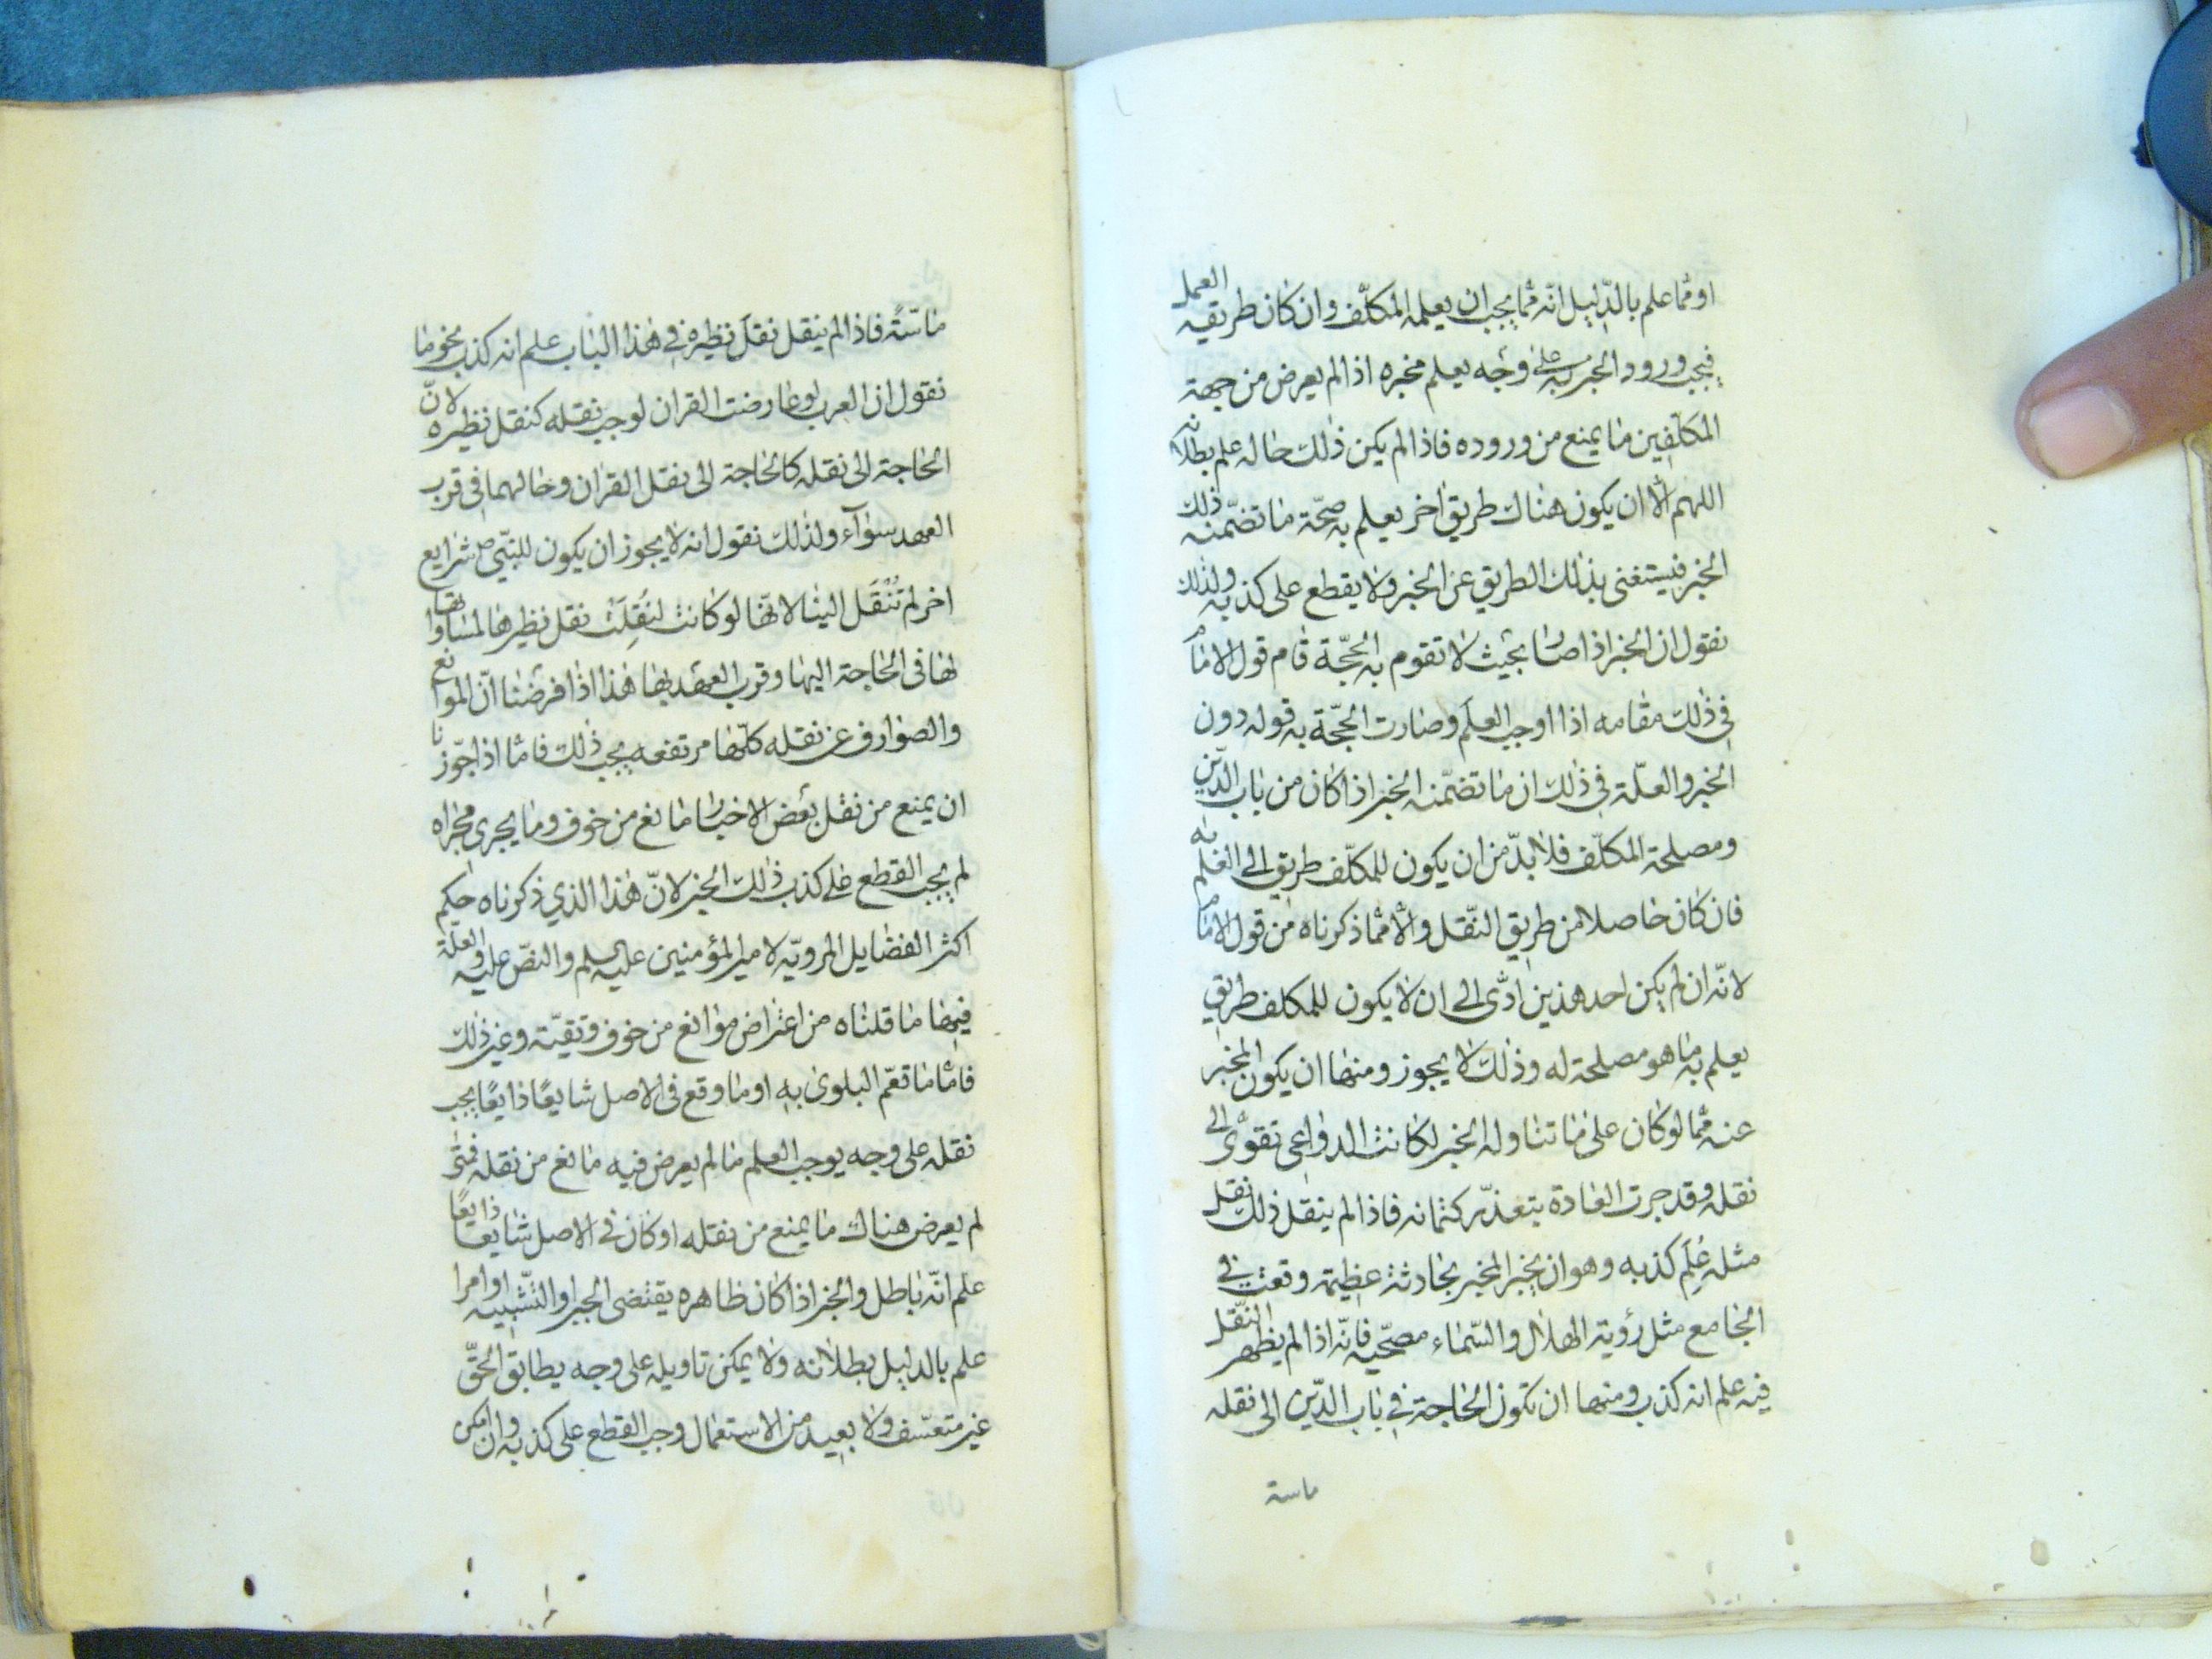 او ممّا علم بالدّليل انّه ممّا يجب ان يعلمه المكلّف وان كان طريقه العمل
فيجب ورود الخبر به على وجه يعلم مخبره اذا لم يعرض من جهة
المكلّفين ما يمنع من وروده فاذا لم يكن ذلك حاله علم بطلانه
اللهم الّا ان يكون هناك طريق اخر يعلم به صحّة ما تضمّنه ذلك
الخبر فيستغنى بذلك الطريق عن الخبر ولا يقطع على كذبه ولذلك
نقول ان الخبر اذا صار بحيث لا تقوم به الحجّة قام قول الامام
في ذلك مقامه اذا اوجب العلم وصارت الحجّة به قوله دون
الخبر والعلّة في ذلك ان ما تضمّنه الخبر اذا كان من باب الدّين
ومصلحة المكلّف فلا بدّ من ان يكون للمكلّف طريق الى العلم به
فان كان حاصلا من طريق النّقل والّا ممّا ذكرناه من قول الامام
لانّه ان لم يكن احد هذين ادّى الى ان لا يكون للمكلف طريق
يعلم به ما هو مصلحة له وذلك لا يجوز ومنها ان يكون المخبر
عنه ممّا لو كان على ما تناوله الخبر لكانت الدواعى تقوّى الى
نقله وقد جرت العادة بتعذّر كتمانه فاذا لم ينقل ذلك نقل
مثله عُلِم كذبه وهو ان يخبر المخبر بحادثة عظيمة وقعت في
الجامع مثل رؤية الهلال والسّماء مصحّيه فانّه اذا لم يظهر النّقل
فيه علم انه كذب ومنها ان تكون الحاجة في باب الدّين الى نقله
ماسة
ماسّةً فاذا لم ينقل نقل نظيره في هذا الباب علم انه كذب نحو ما
نقول ان العرب لو عارضت القران لوجب نقله كنقل نظيره لانّ
الحاجة الى نقله كالحاجة الى نقل القران وحالهما في قرب
العهد سوآء ولذلك نقول انه لا يجوز ان يكون للنبّي ص شرايع
اخر لم تُنْقَل الينا لانّها لو كانت لنُقِلَتْ نقل نظيرها لمساواتها
لها فى الحاجة اليها وقرب العهد بها هذا اذا فرضنا انّ الموانع
والصوارف عن نقله كلّها مرتفعه يجب ذلك فامّا اذا جوّزنا
ان يمنع من نقل بعض الاخبار مانع من خوف وما يجرى مجراه
لم يجب القطع على كذب ذلك الخبر لانّ هذا الذي ذكرناه حكم
اكثر الفضايل المرويّه لامير المؤمنين عليه السلم والنصّ عليه والعلّة
فيها ما قلناه من اعتراض موانع من خوف وتقيّة وغير ذلك
فامّا ما تعمّ البلوى به او ما وقع فى الاصل شايعًا ذايعًا يجب
نقله على وجه يوجب العلم ما لم يعرض فيه مانع من نقله فمتى
لم يعرض هناك ما يمنع من نقله او كان في الاصل شايعًا ذايعًا
علم انّه باطل والخبر اذا كان ظاهره يقتضى الجبر او التّشبيه او امرا
علم بالدليل بطلانه ولا يمكن تاويله على وجه يطابق الحقّ
غير متعسّف ولا بعيد من الاستعمال وجب القطع على كذبه وان امكن